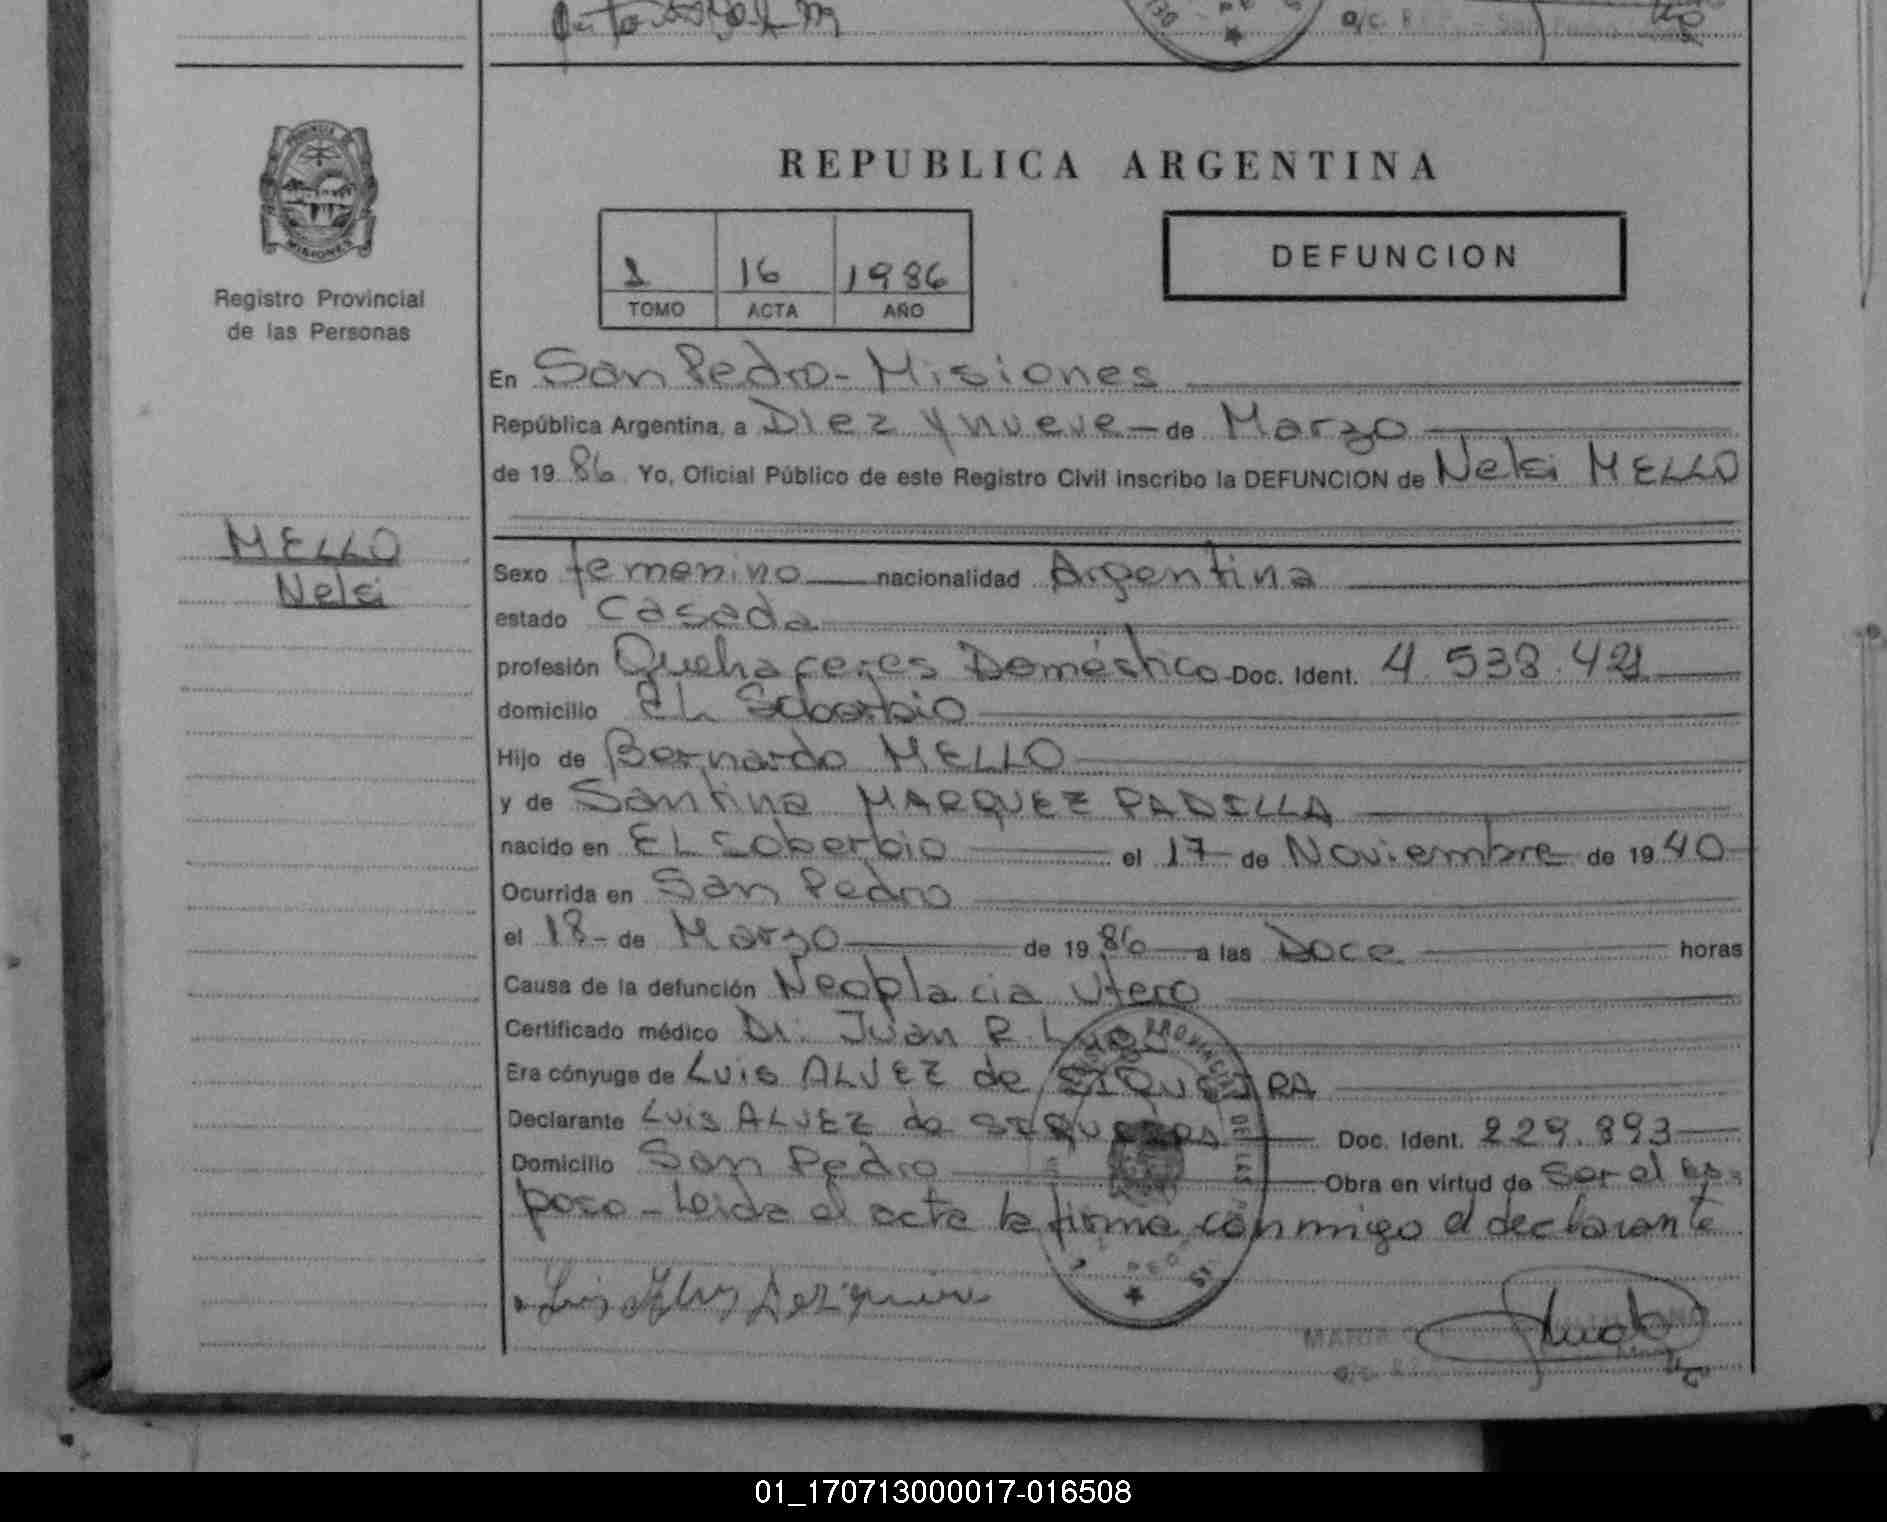 REPUBLICA ARGENTINA
PROVINCIA
MISIONES
Registro Provincial
de las Personas
1 16 1986
TOMO ACTA AÑO
DEFUNCION
En San Pedro - Misiones
República Argentina, a Diez y nueve - de Marzo
de 19 86 Yo, Oficial Público de este Registro Civil inscribo la DEFUNCION de Nelsi MELLO
MELLO
Nelsi
Sexo femenino nacionalidad Argentina
estado Casada
profesión Quehaceres Doméstico Doc. Ident.
domicilio EL Soborbio
Hijo de Bernardo MELLO
y de Santina MARQUEZ PADILLA
nacido en EL Soberbio el 17 de Noviembre de 19 40
Ocurrida en San Pedro
el 18 - de Marzo de 19 86 a las Doce horas
Causa de la defunción Neoplacia Utero
Certificado médico Dr. Juan R.
Era cónyuge de Luis ALVEZ de SIQUEIRA
Declarante Luis ALVEZ de Doc. Ident. 229.893
Domicilio San Pedro Obra en virtud de Ser el es-
poso - Leida el acta la firma conmigo el declarante
01_170713000017-016508